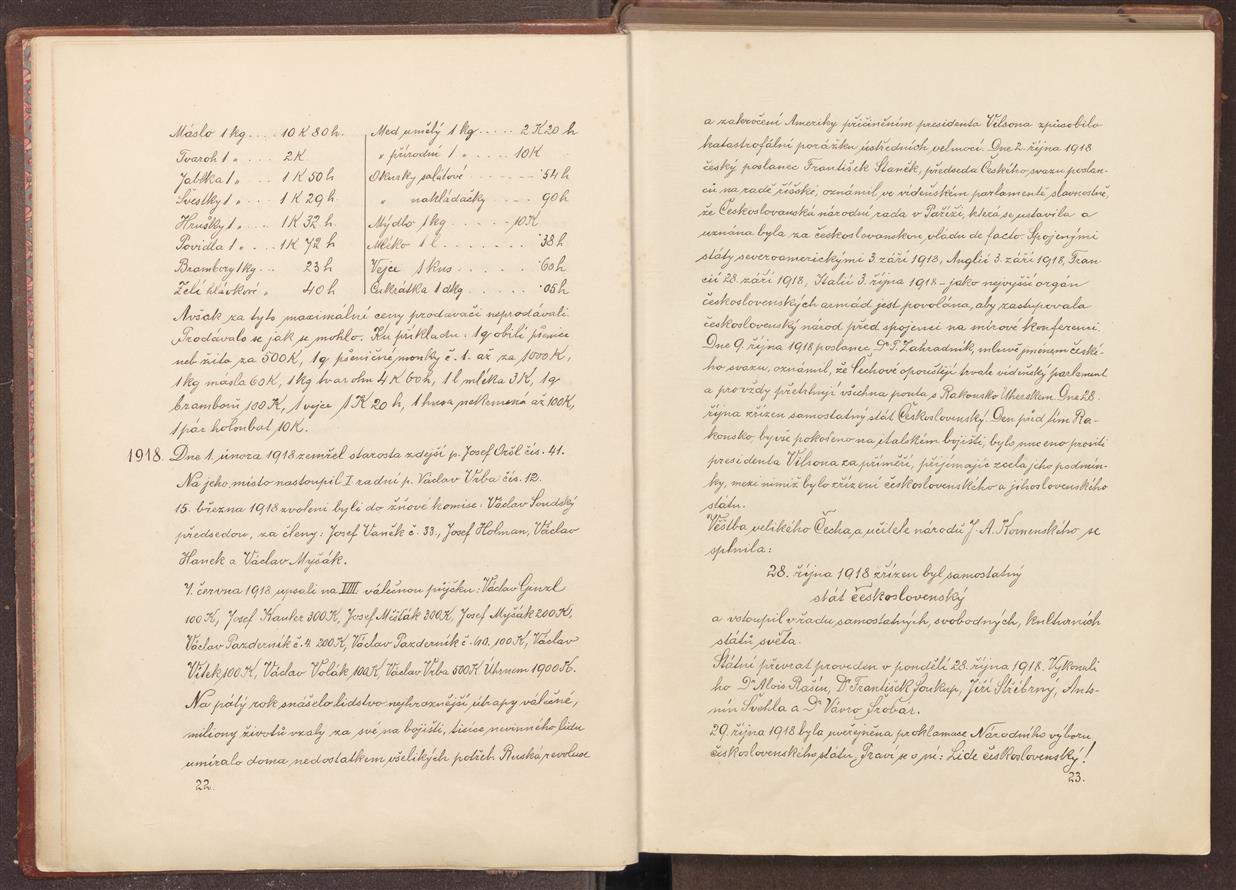 Máslo 1 kg .... 10 K 80 h. Med umělý 1 kg ..... 2 K 20 h
Tvaroh 1 „ .... 2 K „ přírodní 1 „ ..... 10 K
Jablka 1 „ ... 1 K 50 h Okurky salátové ....... 54 h
Švestky 1 „ ... 1 K 29 h „ nakládačky .... 90 h
Hrušky 1 „ .... 1 K 32 h. Mýdlo 1 kg ..... 10 K
Povidla 1 „ ... 1 K 72 h Mléko 1 l ....... 38 h
Brambory 1 kg ... 23 h Vejce 1 kus ..... 60 h
Zelí hlávkové „ 40 h Cukrátka 1 dkg ..... 05 h
Avšak za tyto maximální ceny prodavači neprodávali.
Prodávalo se jak se mohlo. Ku příkladu: 1 q obilí pšenice
neb žita za 500 K, 1 q pšeničné mouky č. 1. až za 1000 K,
1 kg másla 60 K, 1 kg tvarohu 4 K 60 h, 1 l mléka 3 K, 1 q
bramborů 100 K, 1 vejce 1 K 20 h, 1 husa nekrmená až 100 K,
1 pár holoubat 10 K.
1918. Dne 1. února 1918 zemřel starosta zdejší p. Josef Oršl čís. 41.
Na jeho místo nastoupil I radní p. Václav Vrba čís. 12.
15. března 1918 zvoleni byli do žňové komise: Václav Soudský
předsedou, za členy: Josef Vaněk č. 33., Josef Holman, Václav
Hanek a Václav Myšák.
7. června 1918 upsali na VIII. válečnou půjčku: Václav Ginzl
100 K, Josef Kauler 300 K, Josef Mišťák 300 K, Josef Myšák 200 K,
Václav Pazderník č. 4 200 K, Václav Pazderník č. 40. 100 K, Václav
Vítek 100 K, Václav Volák 100 K, Václav Vrba 500 K Úhrnem 1900 K.
Na pátý rok snášelo lidstvo nejhroznější útrapy válečné,
miliony životů vzaly za své na bojišti, tisíce nevinného lidu
umíralo doma nedostatkem všelikých potřeb. Ruská revoluce
22.
a zakročení Ameriky přičiněním presidenta Vilsona způsobilo
katastrofální porážku ústředních velmocí. Dne 2. října 1918
český poslanec František Staněk, předseda Českého svazu poslan-
ců na radě říšské, oznámil ve vídeňském parlamentě slavnostně,
že Československá národní rada v Paříži, která se ustavila a
uznána byla za československou vládu de facto. Spojenými
státy severoamerickými 3. září 1918, Anglií 3. září 1918, Fran-
cií 28. září 1918, Italií 3. října 1918 - jako nejvyšší orgán
československých armád jest povolána, aby zastupovala
československý národ před spojenci na mírové konferenci.
Dne 9. října 1918 poslanec Dr. I. Zahradník, mluvě jménem české-
ho svazu, oznámil, že Čechové opouštějí trvale vídeňský parlament
a pro vždy přetrhují všechna pouta s Rakousko Uherskem. Dne 28.
října zřízen samostatný stát Československý. Den před tím Ra-
kousko, byvše pokořeno na italském bojišti, bylo nuceno prositi
presidenta Vilsona za příměří, přijímajíc zcela jeho podmín-
ky, mezi nimiž bylo zřízení československého a jihoslovenského
státu.
Věštba velikého Čecha, a učitele národů J. A. Komenského se
splnila:
28. října 1918 zřízen byl samostatný
stát Československý
a vstoupil v řadu samostatných, svobodných, kulturních
států světa.
Státní převrat proveden v pondělí 28. října 1918. Vykonali
ho Dr Alois Rašín, Dr František Soukup, Jiří Stříbrný, Anto-
nín Švehla a Dr Vávro Šrobár.
29. října 1918 byla uveřejněna proklamace Národního výboru
československého státu. Praví se v ní: Lide československý!
23.